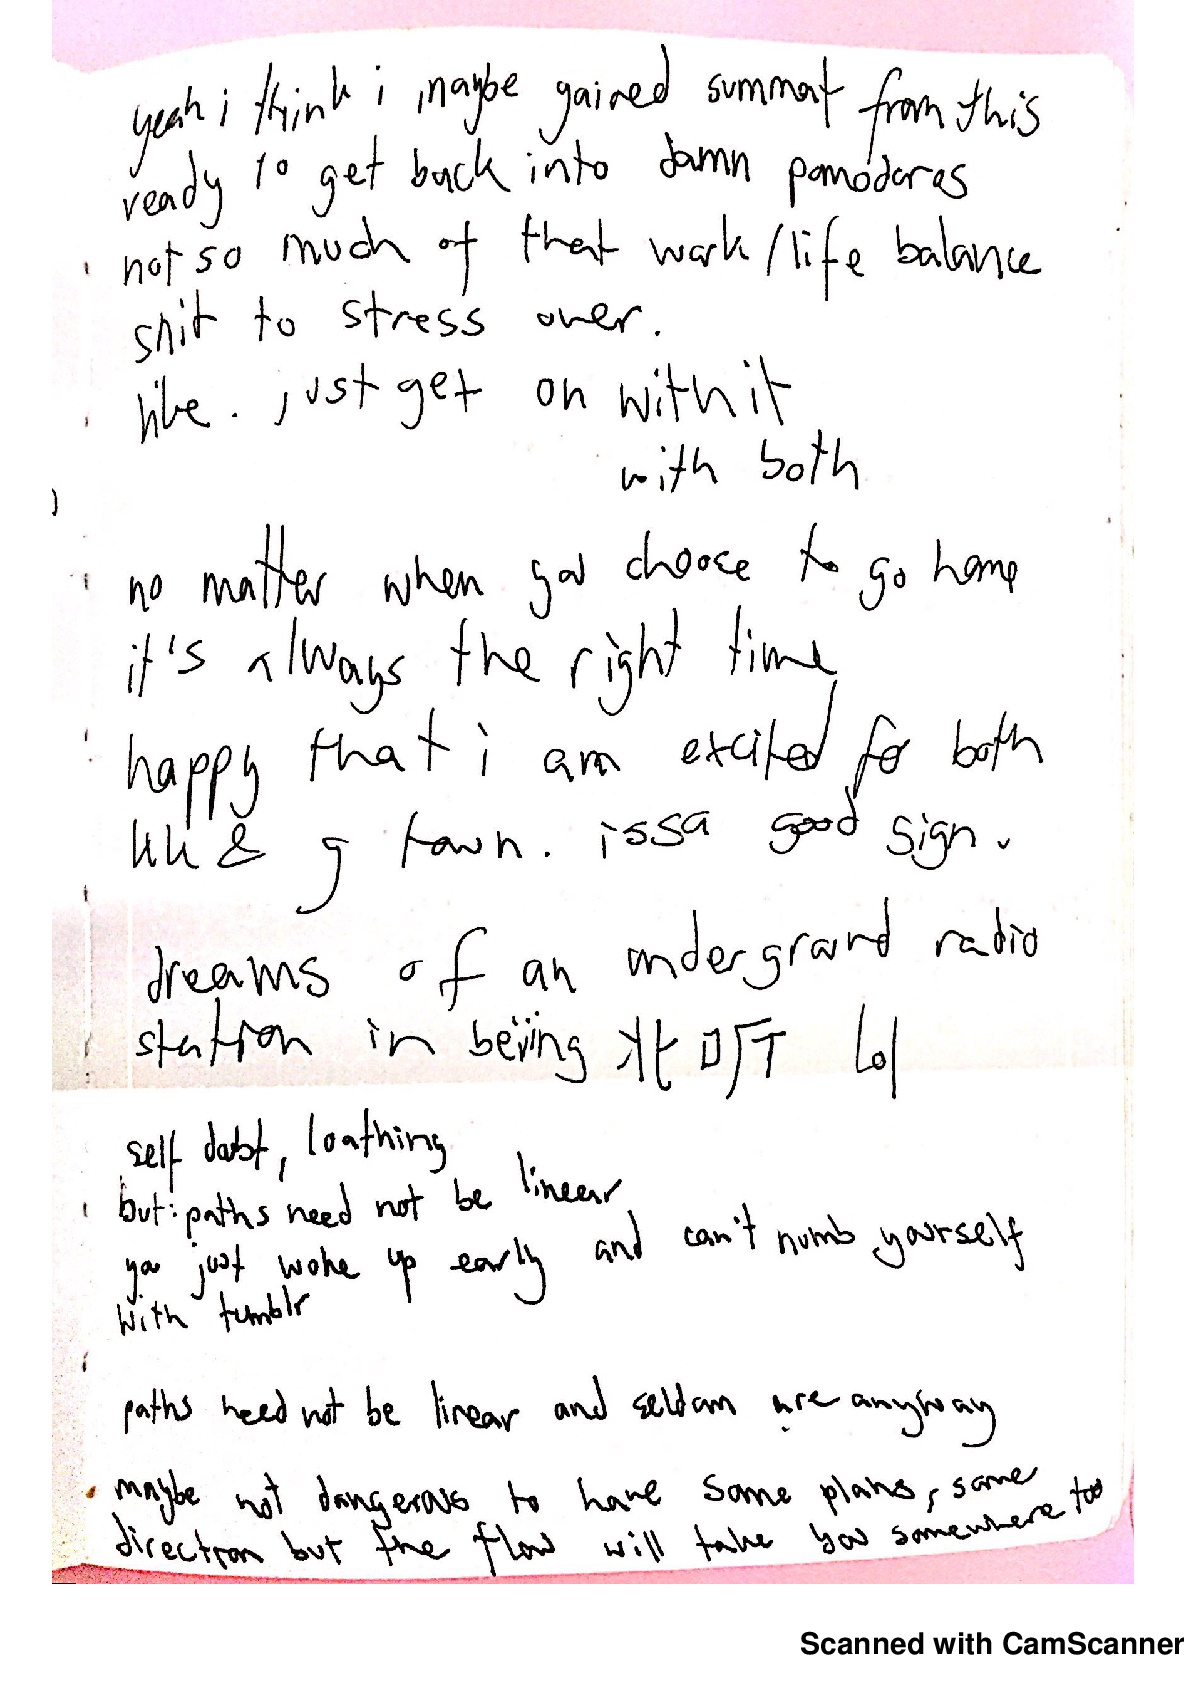 yeah i think i maybe gained summat from this
ready to get back into damn pomodoros
not so much of that work/life balance
shit to stress over.
like. just get on with it
with both
no matter when you choose to go home
it's always the right time
happy that i am excited for both
hk & g town. issa good sign.
dreams of an underground radio
station in beijing lol
self doubt, loathing
but: paths need not be linear
you just woke up early and can't numb yourself
with tumblr
paths need not be linear and seldom are anyway
maybe not dangerous to have some plans, some
direction but the flow will take you somewhere too
Scanned with CamScanner